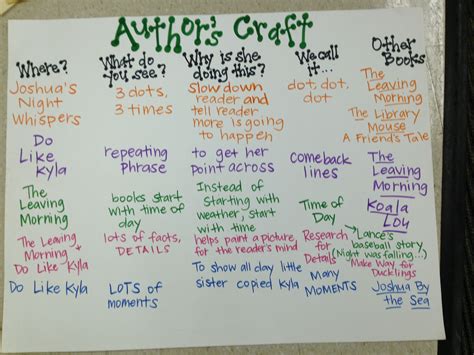 Author's Craft
Where?
What do
you see?
Why is she
doing this?
We call
it...
Other
Books
Joshua's
Night
Whispers
3 dots,
3 times
slow down
reader and
tell reader
more is going
to happen
dot, dot,
dot
The
Leaving
Morning
The Library
Mouse
A Friend's Tale
Do
Like
Kyla
repeating
phrase
to get her
point across
comeback
lines
The
Leaving
Morning
The
Leaving
Morning
books start
with time of
day
Instead of
starting with
weather, start
with time
Time of
Day
Koala
Lou
The Leaving
Morning
Do Like Kyla
lots of facts,
DETAILS
helps paint a picture,
for the reader's mind
Research
for
Details
Lance's
baseball story
(Night was falling...)
Make Way for
Ducklings
Do Like Kyla
LOTS of
moments
To show all day little
sister copied Kyla
Many
MOMENTS
Joshua By
the Sea